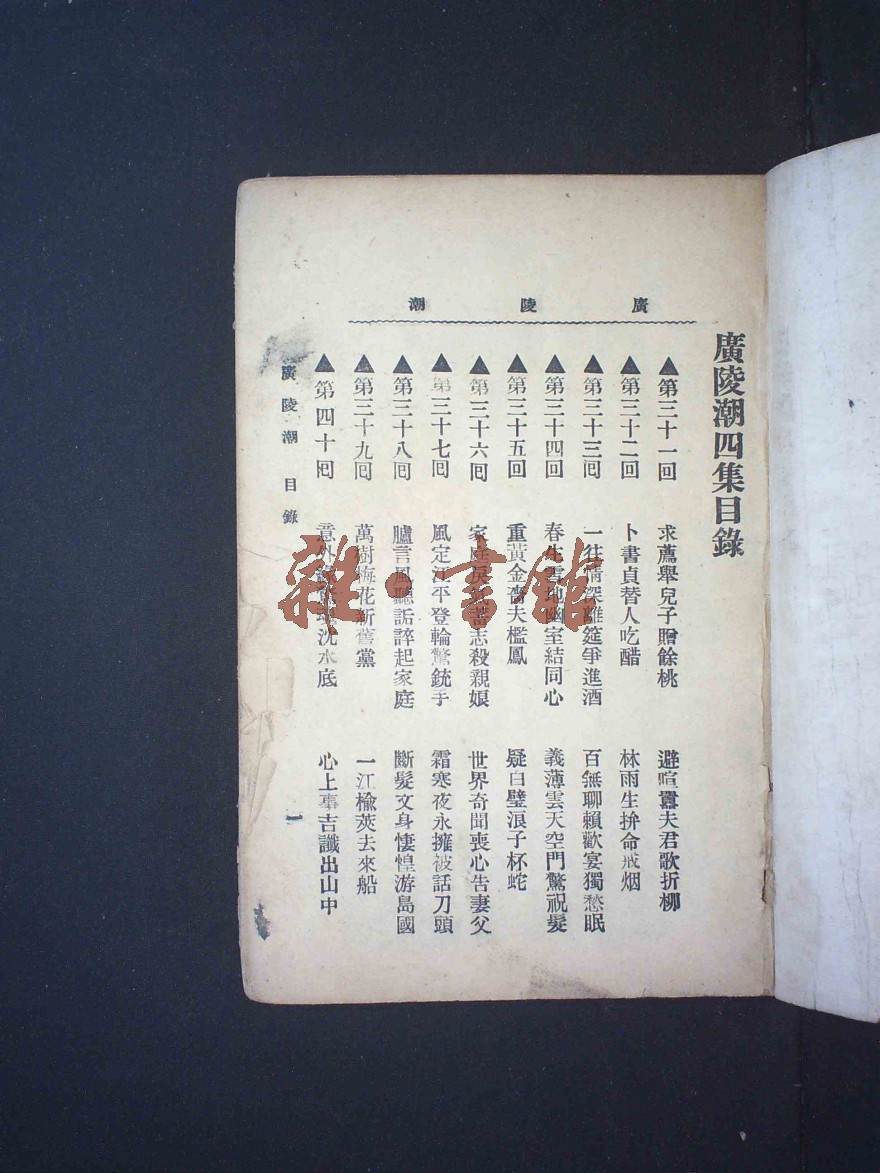 廣陵潮
廣陵潮四集目錄
▲第三十一回 求薦舉兒子贈餘桃 避喧囂夫君歌折柳
▲第三十二回 卜書貞替人吃醋 林雨生拚命戒烟
▲第三十三回 一往情深離筵爭進酒 百無聊賴歡宴獨愁眠
▲第三十四回 春生雪地幽室結同心 義薄雲天空門驚祝髮
▲第三十五回 重黃金嗇夫檻鳳 疑白璧浪子杯蛇
▲第三十六回 家庭戾氣蓄志殺親娘 世界奇聞喪心告妻父
▲第三十七回 風定江平登輪驚銃手 霜寒夜永擁被話刀頭
▲第三十八回 臚言風聽詬誶起家庭 斷髮文身悽惶游島國
▲第三十九回 萬樹梅花新舊黨 一江楡莢去來船
▲第四十回 意外 沈水底 心上事吉讖出山中
廣陵潮 目錄
一
雜·書館